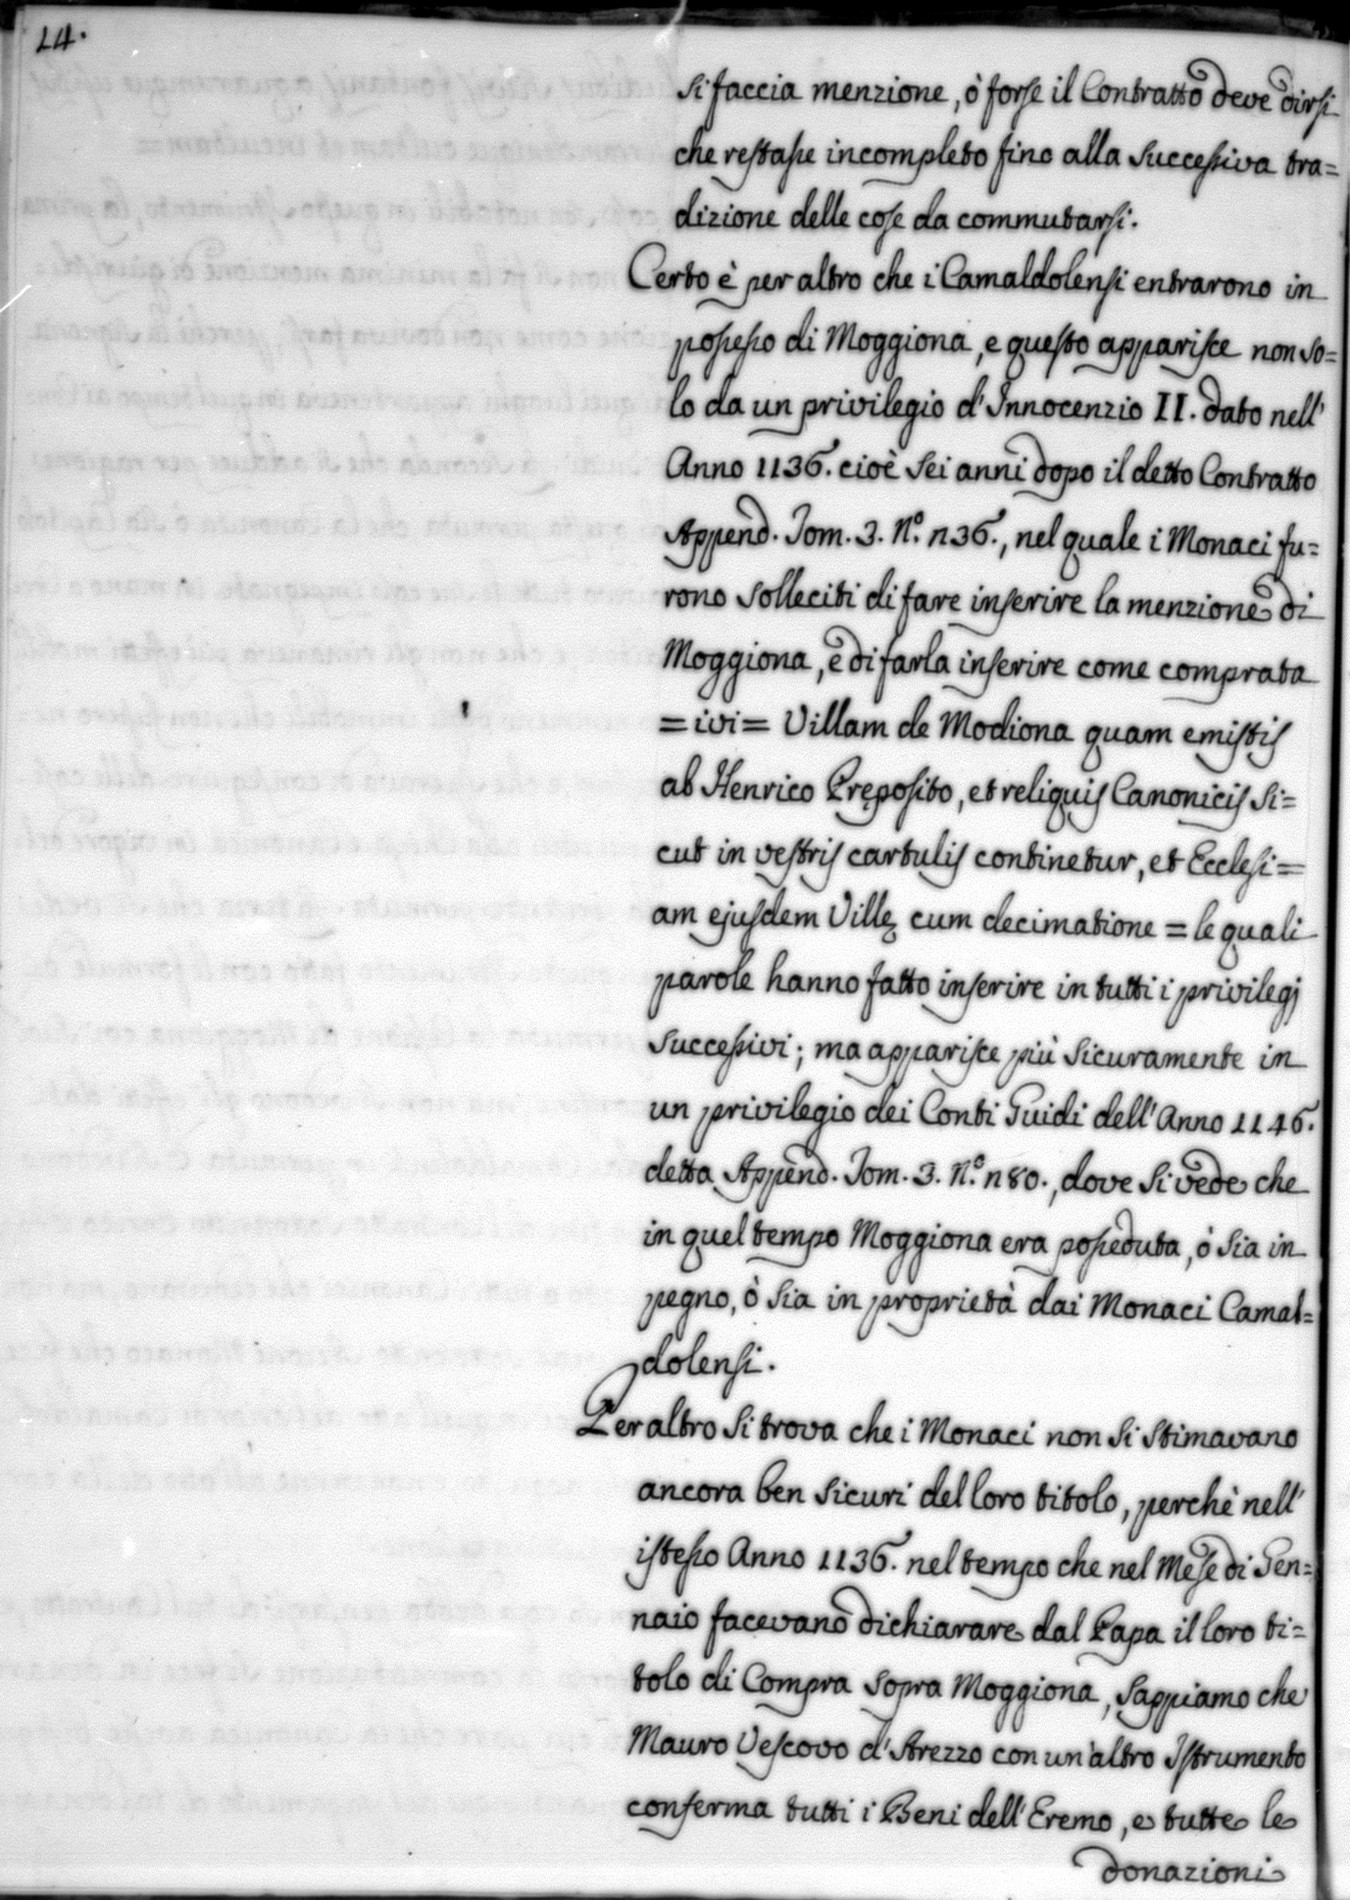 14.
si faccia menzione, ò forse il Contratto deve dirsi
che restasse incompleto fino alla successiva tra=
dizione delle cose da commutarsi.
Certo è per altro che i Camaldolensi entrarono in
possesso di Moggiona, e questo apparisce non so=
lo da un privilegio d'Innocenzio II. dato nell'
Anno 1136. cioè sei anni dopo il detto Contratto
Append. Tom. 3. N.º n36., nel quale i Monaci fu=
rono solleciti di fare inserire la menzione di
Moggiona, e di farla inserire come comprata
= ivi = Villam de Modiona quam emistis
ab Henrico Pręposito, et reliquis Canonicis si=
cut in vestris cartulis continetur, et Ecclesi=
am ejusdem Villę cum decimatione = le quali
parole hanno fatto inserire in tutti i privilegj
successivi; ma apparisce più sicuramente in
un privilegio dei Conti Guidi dell'Anno 1146.
detta Append. Tom. 3. N.º n80., dove si vede che
in quel tempo Moggiona era posseduta, ò sia in
pegno, ò sia in proprietà dai Monaci Camal=
dolensi.
Per altro si trova che i Monaci non si stimavano
ancora ben sicuri del loro titolo, perchè nell'
istesso Anno 1136. nel tempo che nel Mese di Gen=
naio facevano dichiarare dal Papa il loro ti=
tolo di Compra sopra Moggiona, sappiamo che
Mauro Vescovo d'Arezzo con un'altro Istrumento
conferma tutti i Beni dell'Eremo, e tutte le
donazioni